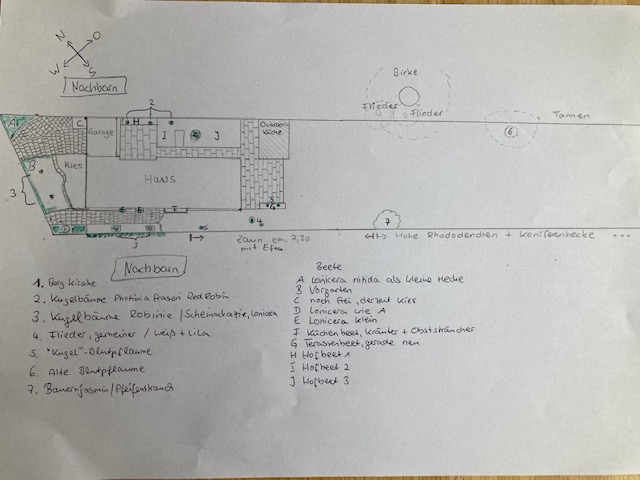 N O
W S
Nachbarn
2
Birke
Flieder Flieder
Tannen
6
A C Garage H I J Outdoor
Küche
B Kies Haus
3
D E E F G
3
4
5
7
Zaun ca.
mit Efeu
Hohe Rhododendren + Koniferenhecke ...
Nachbarn
1. Berg Kirsche
2. Kugelbäume Photinia fraseri Red Robin
3. Kugelbäume Robinie / Scheinakazie, Lonicera
4. Flieder, gemeiner / weiß + lila
5. "Kugel"-Blutpflaume
6. Alte Blutpflaume
7. Bauernjasmin/Pfeifenstrauch
Beete
A Lonicera nitida als kleine Hecke
B Vorgarten
C noch frei, derzeit Kies
D Lonicera wie A
E Lonicera klein
F Küchenbeet, Kräuter + Obststräucher
G Terassenbeet, gerade neu
H Hofbeet 1
I Hofbeet 2
J Hofbeet 3